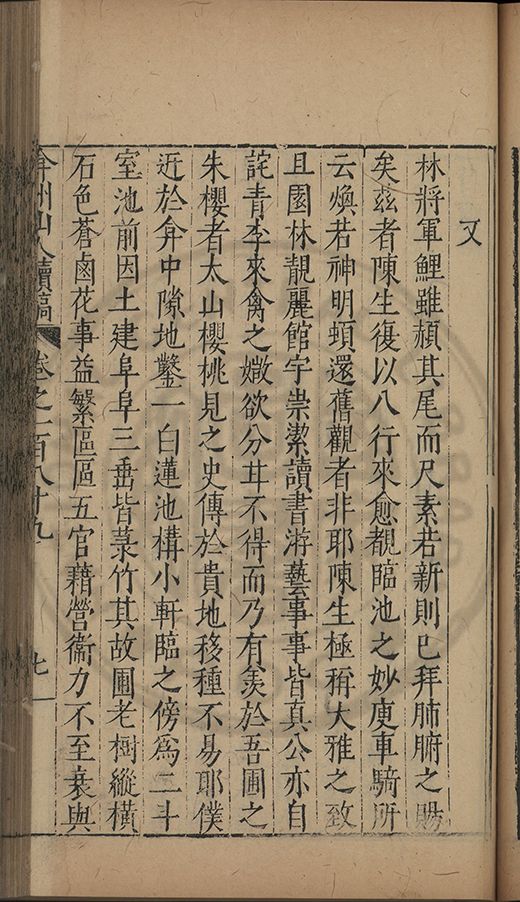 又
林將軍鯉雖頳其尾而尺素若新則已拜肺腑之賜
矣茲者陳生復以八行來愈覩臨池之妙㢈車騎所
云煥若神明頓還舊觀者非耶陳生極稱大雅之致
且園林靚麗館宇崇潔讀書游藝事事皆真公亦自
詫青李來禽之媺欲分丼不得而乃有羨於吾圃之
朱櫻者太山櫻桃見之史傳於貴地移種不易耶僕
近於弇中隙地鑿一白蓮池構小軒臨之傍為二斗
室池前因土建阜阜三垂皆菉竹其故圃老樹縱橫
石色蒼鹵花事益繁區區五官藉營衞力不至衰與
弇州山人續稿 卷之一百八十九 七